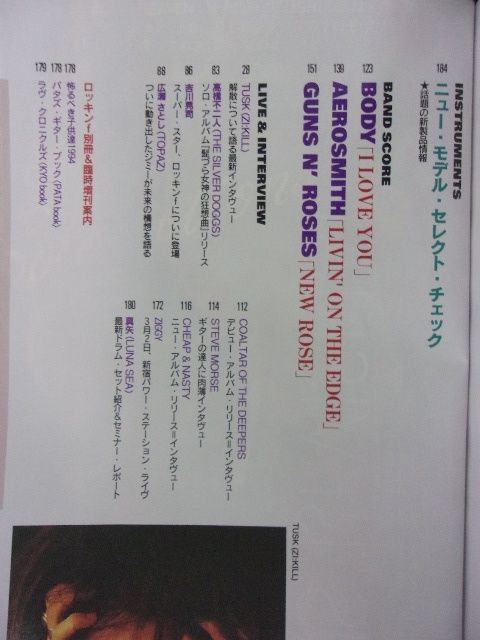 INSTRUMENTS
184 ニュー・モデル・セレクト・チェック
★話題の新製品情報
BAND SCORE
123 BODY「I LOVE YOU」
139 AEROSMITH「LIVIN' ON THE EDGE」
151 GUNS N' ROSES「NEW ROSE」
LIVE & INTERVIEW
29 TUSK (ZI:KILL)
解散について語る最新インタヴュー
83 高橋不二人 (THE SILVER DOGGS)
ソロ・アルバム『髭づら女神の狂想曲』リリース
86 吉川晃司
スーパー・スター、ロッキンfについに登場
88 広瀬さとし (TOPAZ)
ついに動き出したジミーが未来の構想を語る
112 COALTAR OF THE DEEPERS
デビュー・アルバム・リリース=インタヴュー
114 STEVE MORSE
ギターの達人に肉薄インタヴュー
116 CHEAP & NASTY
ニュー・アルバム・リリース=インタヴュー
172 ZIGGY
3月2日、新宿パワー・ステーション・ライヴ
180 真矢 (LUNA SEA)
最新ドラム・セット紹介&セミナー・レポート
ロッキンf別冊&臨時増刊案内
178 怖るべき子供達1994
178 パタズ・ギター・ブック (PATA book)
179 ラヴ・クロニクルズ (KYO book)
TUSK (ZI:KILL)